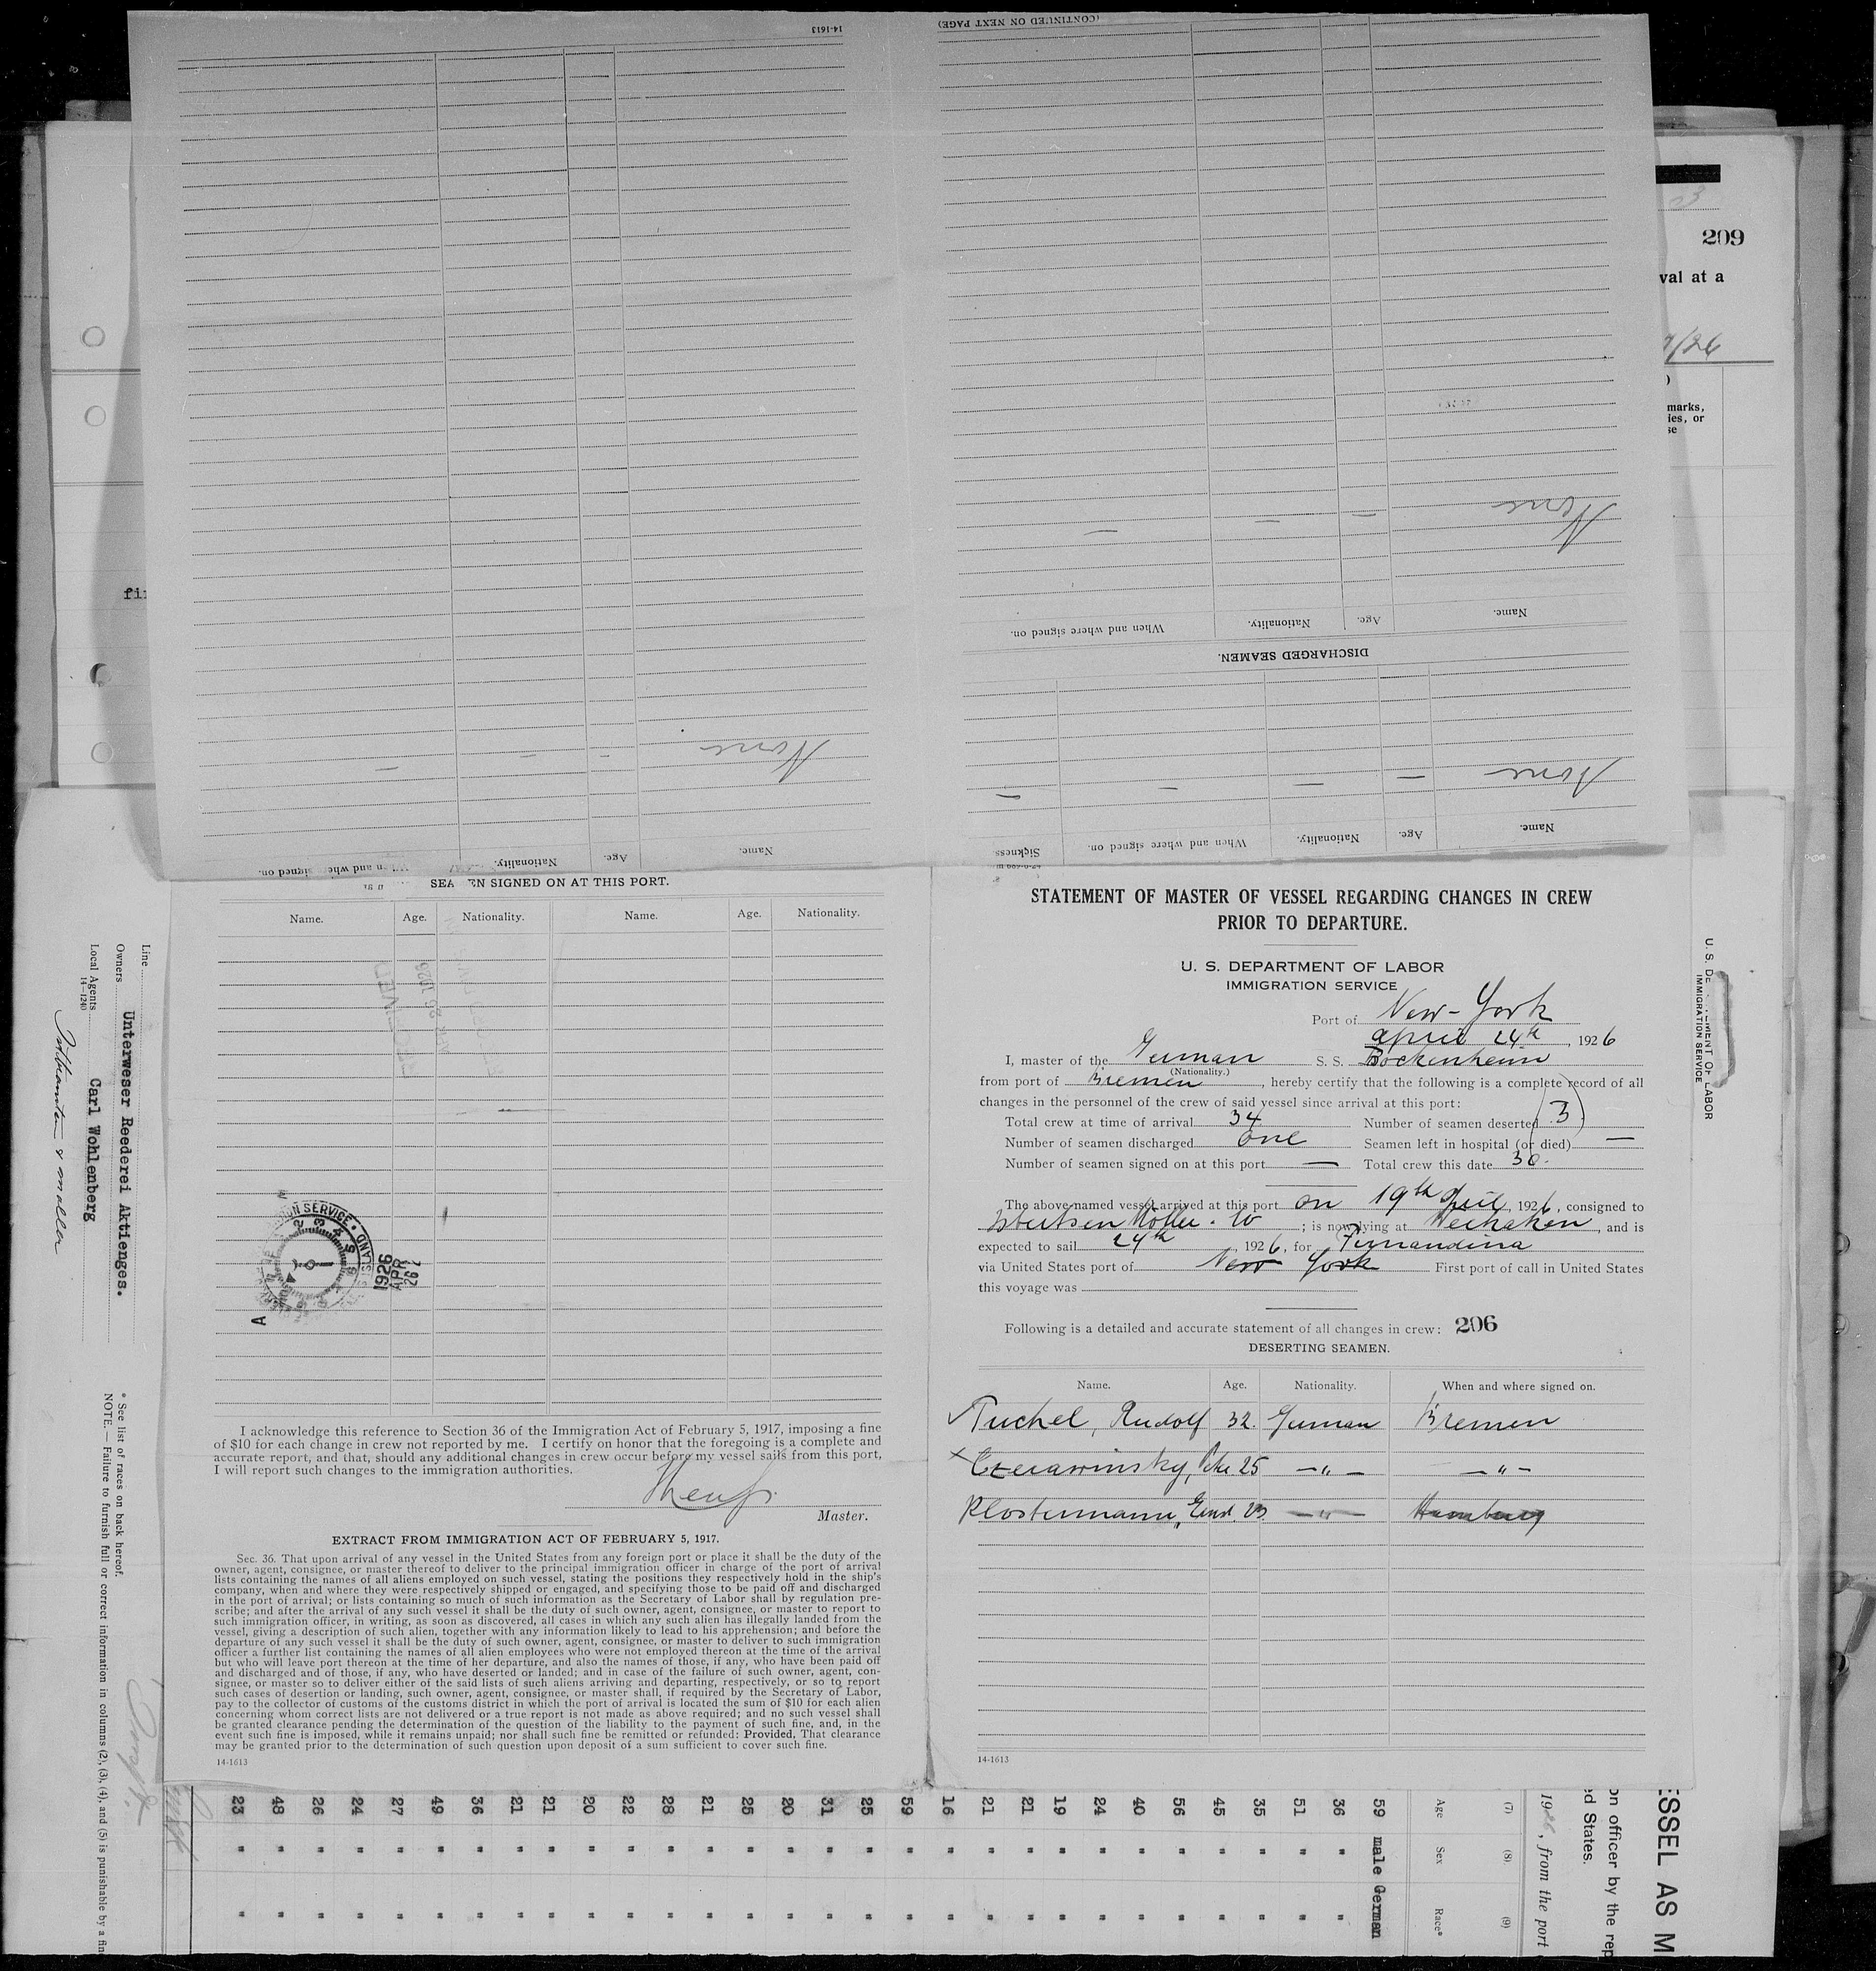 14-1613
(CONTINUED ON NEXT PAGE)
None
Name.
Age.
Nationality.
When and where signed on.
DISCHARGED SEAMEN.
None
Name.
Age.
Nationality.
When and where signed on.
Sickness
None
Name.
Age.
Nationality.
signed on.
209
val at a
7/26
marks,
ies, or
se
fi
SEA EN SIGNED ON AT THIS PORT.
Name. Age. Nationality. Name. Age. Nationality.
1926
APR
26
I acknowledge this reference to Section 36 of the Immigration Act of February 5, 1917, imposing a fine
of $10 for each change in crew not reported by me. I certify on honor that the foregoing is a complete and
accurate report, and that, should any additional changes in crew occur before my vessel sails from this port,
I will report such changes to the immigration authorities.
Master.
EXTRACT FROM IMMIGRATION ACT OF FEBRUARY 5, 1917.
Sec. 36. That upon arrival of any vessel in the United States from any foreign port or place it shall be the duty of the
owner, agent, consignee, or master thereof to deliver to the principal immigration officer in charge of the port of arrival
lists containing the names of all aliens employed on such vessel, stating the positions they respectively hold in the ship's
company, when and where they were respectively shipped or engaged, and specifying those to be paid off and discharged
in the port of arrival; or lists containing so much of such information as the Secretary of Labor shall by regulation pre-
scribe; and after the arrival of any such vessel it shall be the duty of such owner, agent, consignee, or master to report to
such immigration officer, in writing, as soon as discovered, all cases in which any such alien has illegally landed from the
vessel, giving a description of such alien, together with any information likely to lead to his apprehension; and before the
departure of any such vessel it shall be the duty of such owner, agent, consignee, or master to deliver to such immigration
officer a further list containing the names of all alien employees who were not employed thereon at the time of the arrival
but who will leave port thereon at the time of her departure, and also the names of those, if any, who have been paid off
and discharged and of those, if any, who have deserted or landed; and in case of the failure of such owner, agent, con-
signee, or master so to deliver either of the said lists of such aliens arriving and departing, respectively, or so to report
such cases of desertion or landing, such owner, agent, consignee, or master shall, if required by the Secretary of Labor,
pay to the collector of customs of the customs district in which the port of arrival is located the sum of $10 for each alien
concerning whom correct lists are not delivered or a true report is not made as above required; and no such vessel shall
be granted clearance pending the determination of the question of the liability to the payment of such fine, and, in the
event such fine is imposed, while it remains unpaid; nor shall such fine be remitted or refunded: Provided, That clearance
may be granted prior to the determination of such question upon deposit of a sum sufficient to cover such fine.
14-1613
STATEMENT OF MASTER OF VESSEL REGARDING CHANGES IN CREW
PRIOR TO DEPARTURE.
U. S. DEPARTMENT OF LABOR
IMMIGRATION SERVICE
Port of New-York
april 24th, 1926
I, master of the German S. S. Bockenheim
(Nationality.)
from port of Bremen, hereby certify that the following is a complete record of all
changes in the personnel of the crew of said vessel since arrival at this port:
Total crew at time of arrival 34 Number of seamen deserted 3
Number of seamen discharged One Seamen left in hospital (or died) —
Number of seamen signed on at this port — Total crew this date 30.
The above named vessel arrived at this port on 19th April, 1926, consigned to
; is now lying at Weehaken, and is
expected to sail 24th, 1926, for Fernandina
via United States port of New York First port of call in United States
this voyage was
Following is a detailed and accurate statement of all changes in crew: 206
DESERTING SEAMEN.
Name. Age. Nationality. When and where signed on.
Tuchel, Rudolf 32. German Bremen
25 —"— —"—
Klostermann, 23. —"— Hamburg
14-1613
Line
Owners Unterweser Reederei Aktienges.
Local Agents Carl Wohlenberg
14-1240
* See list of races on back hereof.
NOTE.—Failure to furnish full or correct information in columns (2), (3), (4), and (5) is punishable by a fine
U. S. DE MENT OF LABOR
IMMIGRATION SERVICE
ESSEL AS M
on officer by the rep
ed States.
1926, from the port
(7) (8) (9)
Age Sex Race*
59 male German
36 " "
51 " "
35 " "
45 " "
56 " "
40 " "
24 " "
19 " "
21 " "
21 " "
16 " "
59 " "
25 " "
31 " "
20 " "
25 " "
21 " "
28 " "
22 " "
20 " "
21 " "
21 " "
36 " "
49 " "
27 " "
24 " "
26 " "
48 " "
23 " "